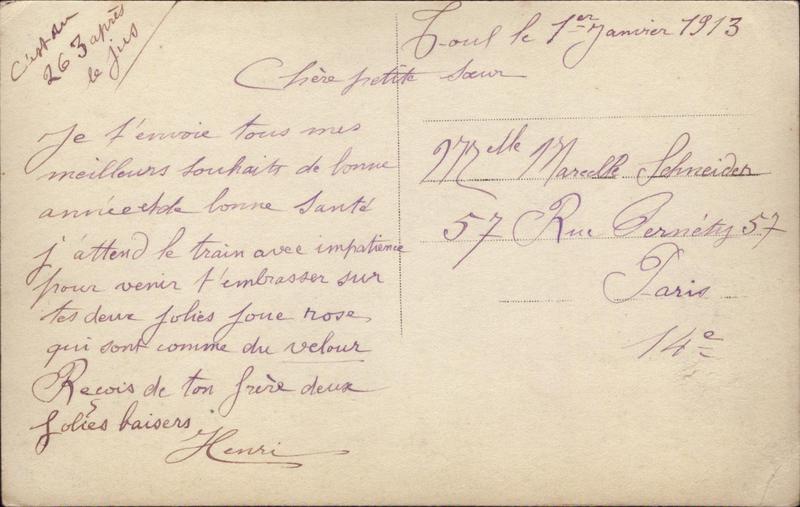 c'est du
263 après
le jus
Toul le 1er Janvier 1913
Chère petite sœur
Je t'envoie tous mes
meilleurs souhaits de bonne
année et de bonne santé
j'attend le train avec impatience
pour venir t'embrasser sur
tes deux jolies joue rose
qui sont comme du velour
Reçois de ton frère deux
jolies baisers
Henri
Melle Marcelle Schneider
57 Rue Pernéty 57
Paris
14e